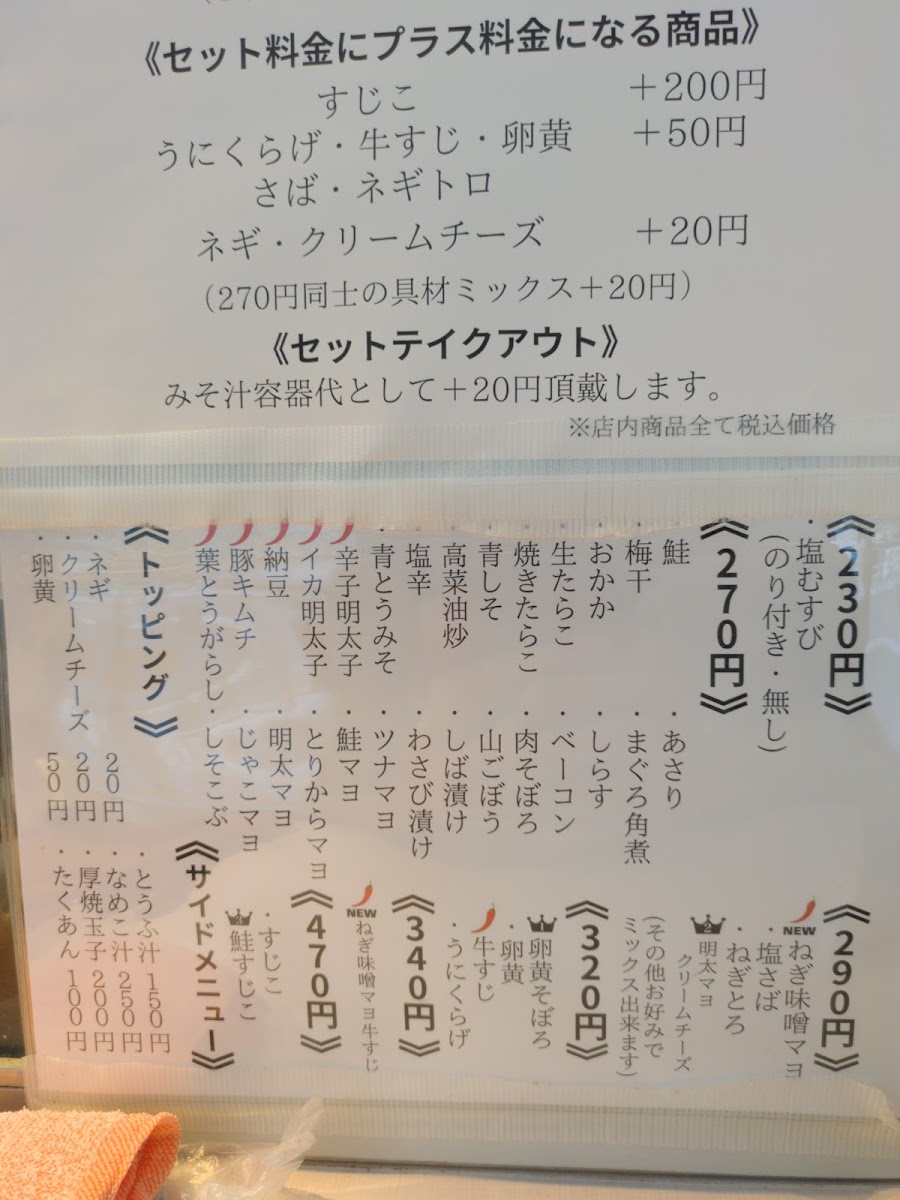 《セット料金にプラス料金になる商品》
すじこ +200円
うにくらげ・牛すじ・卵黄 +50円
さば・ネギトロ
ネギ・クリームチーズ +20円
(270円同士の具材ミックス+20円)
《セットテイクアウト》
みそ汁容器代として+20円頂戴します。
※店内商品全て税込価格
《230円》
・塩むすび
(のり付き・無し)
《270円》
・鮭
・梅干
・おかか
・生たらこ
・焼きたらこ
・青しそ
・高菜油炒
・塩辛
・青とうみそ
辛子明太子
イカ明太子
納豆
豚キムチ
葉とうがらし
・あさり
・まぐろ角煮
・しらす
・ベーコン
・肉そぼろ
・山ごぼう
・しば漬け
・わさび漬け
・ツナマヨ
・鮭マヨ
・とりからマヨ
・明太マヨ
・じゃこマヨ
・しそこぶ
《290円》
NEW ねぎ味噌マヨ
・塩さば
・ねぎとろ
2 明太マヨ
クリームチーズ
(その他お好みで
ミックス出来ます)
《320円》
1 卵黄そぼろ
・卵黄
牛すじ
・うにくらげ
《340円》
NEW ねぎ味噌マヨ牛すじ
《470円》
・すじこ
3 鮭すじこ
《トッピング》
・ネギ 20円
・クリームチーズ 20円
・卵黄 50円
《サイドメニュー》
・とうふ汁 150円
・なめこ汁 250円
・厚焼玉子 200円
・たくあん 100円